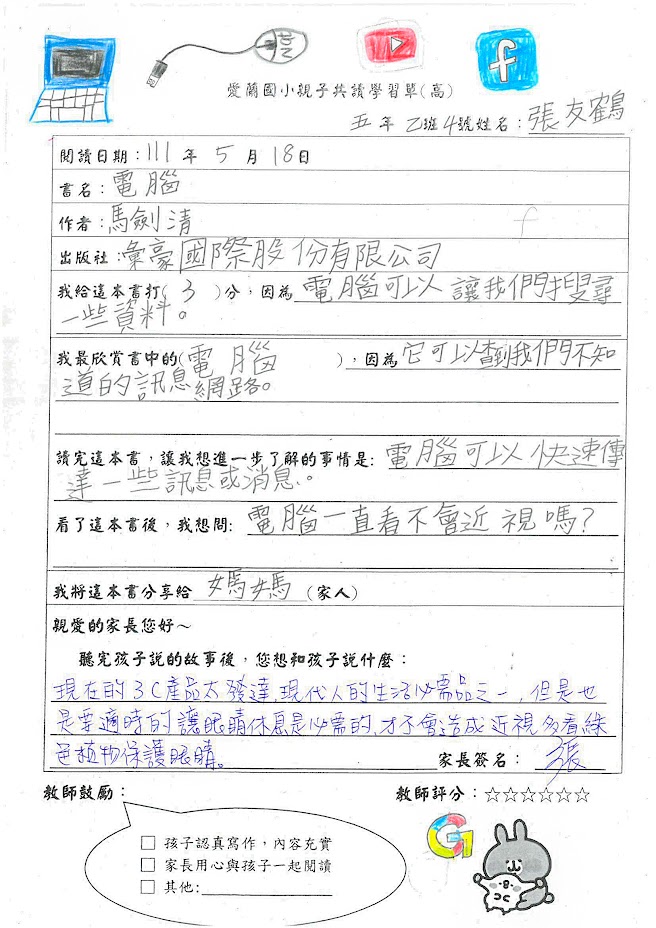 愛蘭國小親子共讀學習單(高)
五年乙班4號姓名：張友鶴
閱讀日期：111年5月18日
書名：電腦
作者：馬劍清
出版社：彙豪國際股份有限公司
我給這本書打(3)分，因為電腦可以讓我們搜尋
一些資料。
我最欣賞書中的(電腦)，因為它可以查到我們不知
道的訊息網路。
讀完這本書，讓我想進一步了解的事情是：電腦可以快速傳
達一些訊息或消息。
看了這本書後，我想問：電腦一直看不會近視嗎？
我將這本書分享給媽媽(家人)
親愛的家長您好～
聽完孩子說的故事後，您想和孩子說什麼：
現在的3C產品太發達,現代人的生活必需品之一，但是也
是要適時的讓眼睛休息是必需的,才不會造成近視多看綠
色植物保護眼睛。
家長簽名：張
教師鼓勵： 教師評分：☆☆☆☆☆☆
□ 孩子認真寫作，內容充實
□ 家長用心與孩子一起閱讀
□ 其他：